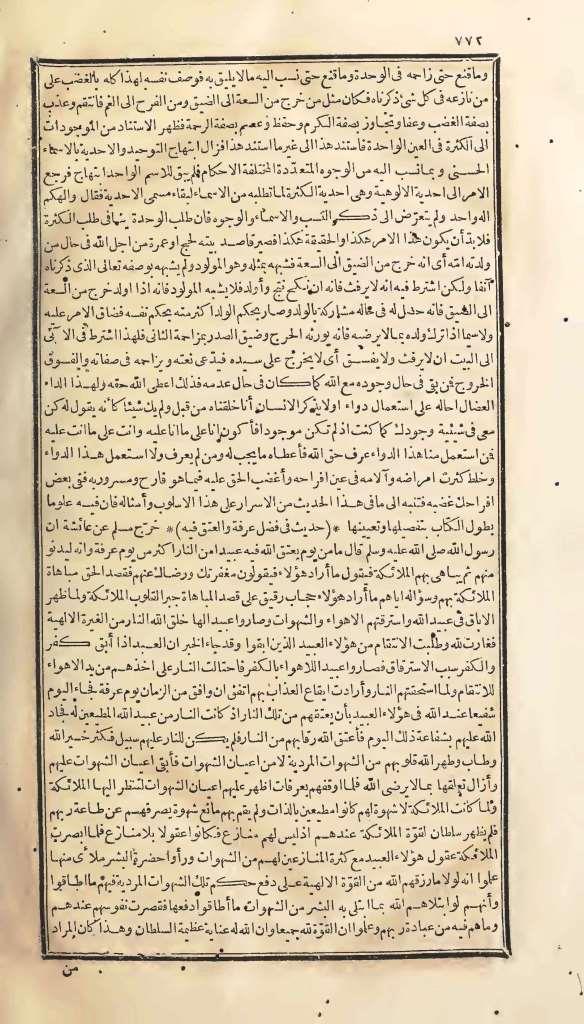 ٧٧٢
وما قنع حتى زاحمه فى الوحدة وما قنع حتى نسب اليه ما لا يليق به فوصف نفسه لهذا كله بالغضب على
من نازعه فى كل شئ ذكرناه فكان مثل من خرج من السعة الى الضيق ومن الفرح الى الغم فانتقم وعذب
بصفة الغضب وعفا وتجاوز بصفة الكرم وحفظ وعصم بصفة الرحمة فظهر الاستناد من الموجودات
الى الكثرة فى العين الواحدة فاستند هذا الى غير ما استند هذا فزال ابتهاج التوحيد والاحدية بالاسماء
الحسنى وبما نسب اليه من الوجوه المتعددة المختلفة الاحكام فلم يبق للاسم الواحد ابتهاج فرجع
الامر الى احدية الالوهية وهى احدية الكثرة لما تطلبه من الاسماء لبقاء مسمى الاحدية فقال والهكم
اله واحد ولم يتعرض الى ذكر النسب والاسماء والوجوه فان طلب الوحدة ينافى طلب الكثرة
فلا بد أن يكون هذا الامر هكذا والحقيقة هكذا فصير قاصد بيته لحج أو عمرة من اجل الله فى حال من
ولدته امه أى انه خرج من الضيق الى السعة فشبهه بمثله وهو المولود ولم يشبهه بوصفه تعالى الذى ذكرناه
آنفا ولكن اشترط فيه انه لا يرفث فانه ان نكح نتج وأولد فلا يشبه المولود فانه اذا اولد خرج من السعة
الى الضيق فانه حصل له فى ماله مشاركة بالولد وصار بحكم الولد اكثر منه بحكم نفسه فضاق الامر عليه
ولاسيما اذا ترك ولده بما لا يرضيه فانه يورثه الحرج وضيق الصدر بمزاحمة الثانى فلهذا اشترط فى الآتى
الى البيت ان لا يرفث ولا يفسق أى لا يخرج على سيده فيدعى نعته ويزاحمه فى صفاته والفسوق
الخروج فمن بقى فى حال وجوده مع الله كما كان فى حال عدمه فذلك اعطى الله حقه ولهذا الداء
العضال احاله على استعمال دواء اولا يذكر الانسان أنا خلقناه من قبل ولم يك شيئا كأنه يقول له كن
معى فى شيئية وجودك كما كنت اذ لم تكن موجودا فأكون انا على ما انا عليه وانت على ما انت عليه
فمن استعمل منا هذا الدواء عرف حق الله فأعطاه ما يجب له ومن لم يعرف ولا استعمل هذا الدواء
وخلط كثرت امراضه وآلامه فى عين افراحه وأغضب الحق عليه فيما هو فارح ومسرور به ففى بعض
افراحك غضبه فتنبه الى ما فى هذا الحديث من الاسرار على هذا الاسلوب وأمثاله فان فيه علوما
يطول الكتاب بتفصيلها وتعيينها *(حديث فى فضل عرفة والعتق فيه)* خرج مسلم عن عائشة ان
رسول الله صلى الله عليه وسلم قال ما من يوم يعتق الله فيه عبيدا من النار اكثر من يوم عرفة وانه ليدنو
منهم ثم يباهى بهم الملائكة فيقول ما أراد هؤلاء فيقولون مغفرتك ورضاك عنهم فقصد الحق مباهاة
الملائكة بهم وسؤاله اياهم ما أراد هؤلاء حجاب رقيق على قصد المباهاة جبرا لقلوب الملائكة ولما ظهر
الاباق فى عبيد الله واسترقتهم الاهواء والشهوات وصاروا عبيدا لها خلق الله النار من الغيرة الالهية
فغارت لله وطلبت الانتقام من هؤلاء العبيد الذين ابقوا وقد جاء الخبر ان العبد اذا أبق كفر
والكفر سبب الاسترقاق فصاروا عبيدا للاهواء بالكفر فاحتالت النار على اخذهم من يد الاهواء
للانتقام ولما استحقتهم النار وأرادت ايقاع العذاب بهم اتفق ان وافق من الزمان يوم عرفة فجاء اليوم
شفيعا عند الله فى هؤلاء العبيد بأن يعتقهم من تلك النار اذ كانت النار من عبيد الله المطيعين له فجاد
الله عليهم بشفاعة ذلك اليوم فأعتق الله رقابهم من النار فلم يكن للنار عليهم سبيل فكثر خير الله
وطاب وطهر الله قلوبهم من الشهوات المردية لا من اعيان الشهوات فأبقى اعيان الشهوات عليهم
وأزال تعلقها بما لا يرضى الله فلما اوقفهم بعرفات اظهر عليهم اعيان الشهوات لتنظر اليها الملائكة
ولما كانت الملائكة لا شهوة لهم كانوا مطيعين بالذات ولم يقم بهم مانع شهوة يصرفهم عن طاعة ربهم
فلم يظهر سلطان لقوة الملائكة عندهم اذ ليس لهم منازع فكانوا عقولا بلا منازع فلما ابصرت
الملائكة عقول هؤلاء العبيد مع كثرة المنازعين لهم من الشهوات ورأوا حضرة البشر ملأى منها
علموا انه لولا ما رزقهم الله من القوة الالهية على دفع حكم تلك الشهوات المردية فيهم ما اطاقوا
وأنهم لو ابتلاهم الله بما ابتلى به البشر من الشهوات ما أطاقوا دفعها فقصرت نفوسهم عندهم
وما هم فيه من عبادة ربهم وعلموا ان القوة لله جميعا وان الله له عناية عظيمة السلطان وهذا كان المراد
من